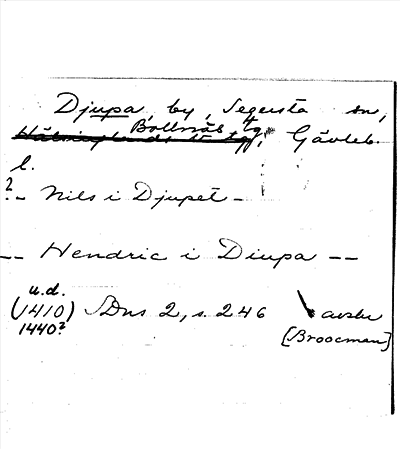 Djupa, by, Segersta sn,
Bollnäs tg,
Hälsinglands V tg, Gävleb.
l.
? -- Nils i Djupet --
-- Hendric i Diupa --
u.d.
(1410) SDns 2, s. 246 avskr
1440? [Broocman]